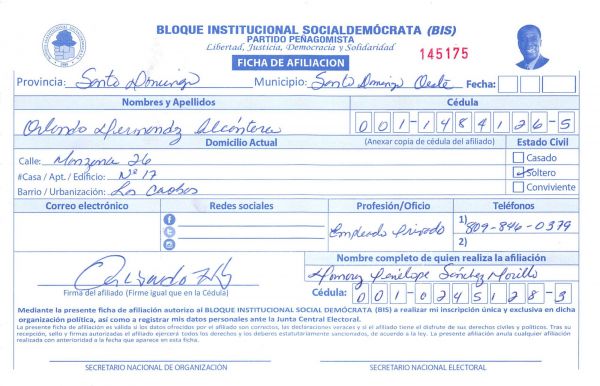 BLOQUE INSTITUCIONAL SOCIALDEMÓCRATA (BIS)
PARTIDO PEÑAGOMISTA
Libertad, Justicia, Democracia y Solidaridad
FICHA DE AFILIACION
145175
Provincia: Santo Domingo Municipio: Santo Domingo Oeste Fecha:
Nombres y Apellidos Cédula
Orlando Hernandz Alcántara 001-1484126-5
Domicilio Actual (Anexar copia de cédula del afiliado) Estado Civil
Calle: Manzana 26 Casado
#Casa / Apt. / Edificio: Nº 17 Soltero
Barrio / Urbanización: Los Conviviente
Correo electrónico Redes sociales Profesión/Oficio Teléfonos
Empleado Privado 1) 809-846-0379
2)
Nombre completo de quien realiza la afiliación
Penélope Sánchez Morillo
Firma del afiliado (Firme igual que en la Cédula) Cédula: 001-0245128-3
Mediante la presente ficha de afiliación autorizo al BLOQUE INSTITUCIONAL SOCIAL DEMÓCRATA (BIS) a realizar mi inscripción única y exclusiva en dicha
organización política, así como a registrar mis datos personales ante la Junta Central Electoral.
La presente ficha de afiliación es válida si los datos ofrecidos por el afiliado son correctos, las declaraciones veraces y si el afiliado tiene el disfrute de sus derechos civiles y políticos. Tras su
recepción, sello y firmas autorizadas el afiliado ejercerá todos los derechos y los deberes estatutariamente sancionados, de acuerdo a la ley. La presente afiliación anula cualquier afiliación
realizada con anterioridad a la fecha que aparece en esta ficha.
SECRETARIO NACIONAL DE ORGANIZACIÓN SECRETARIO NACIONAL ELECTORAL